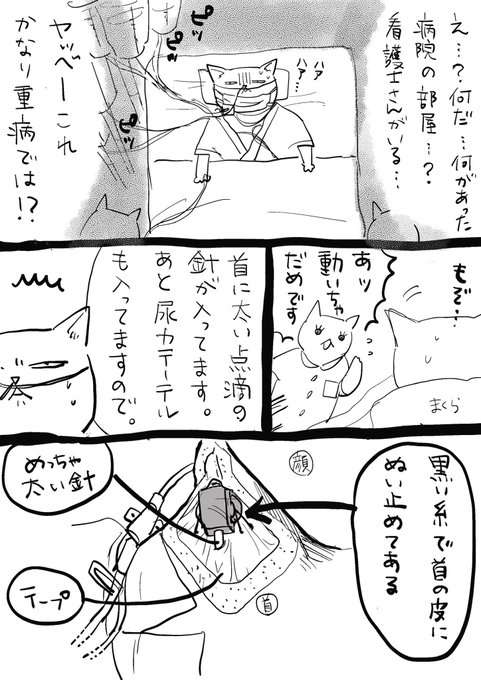 え…?何だ…何があった
病院の部屋…?
看護士さんがいる…
ハァ
ハァ…
ピッ
ピッ
ピッ
ヤッベーこれ
かなり重病では!?
もぞ…
あッ
動いちゃ
だめです
まくら
首に太い点滴の
針が入ってます。
あと尿カテーテル
も入ってますので。
黒い糸で首の皮に
ぬい止めてある
顔
めっちゃ
太い針
テープ
首